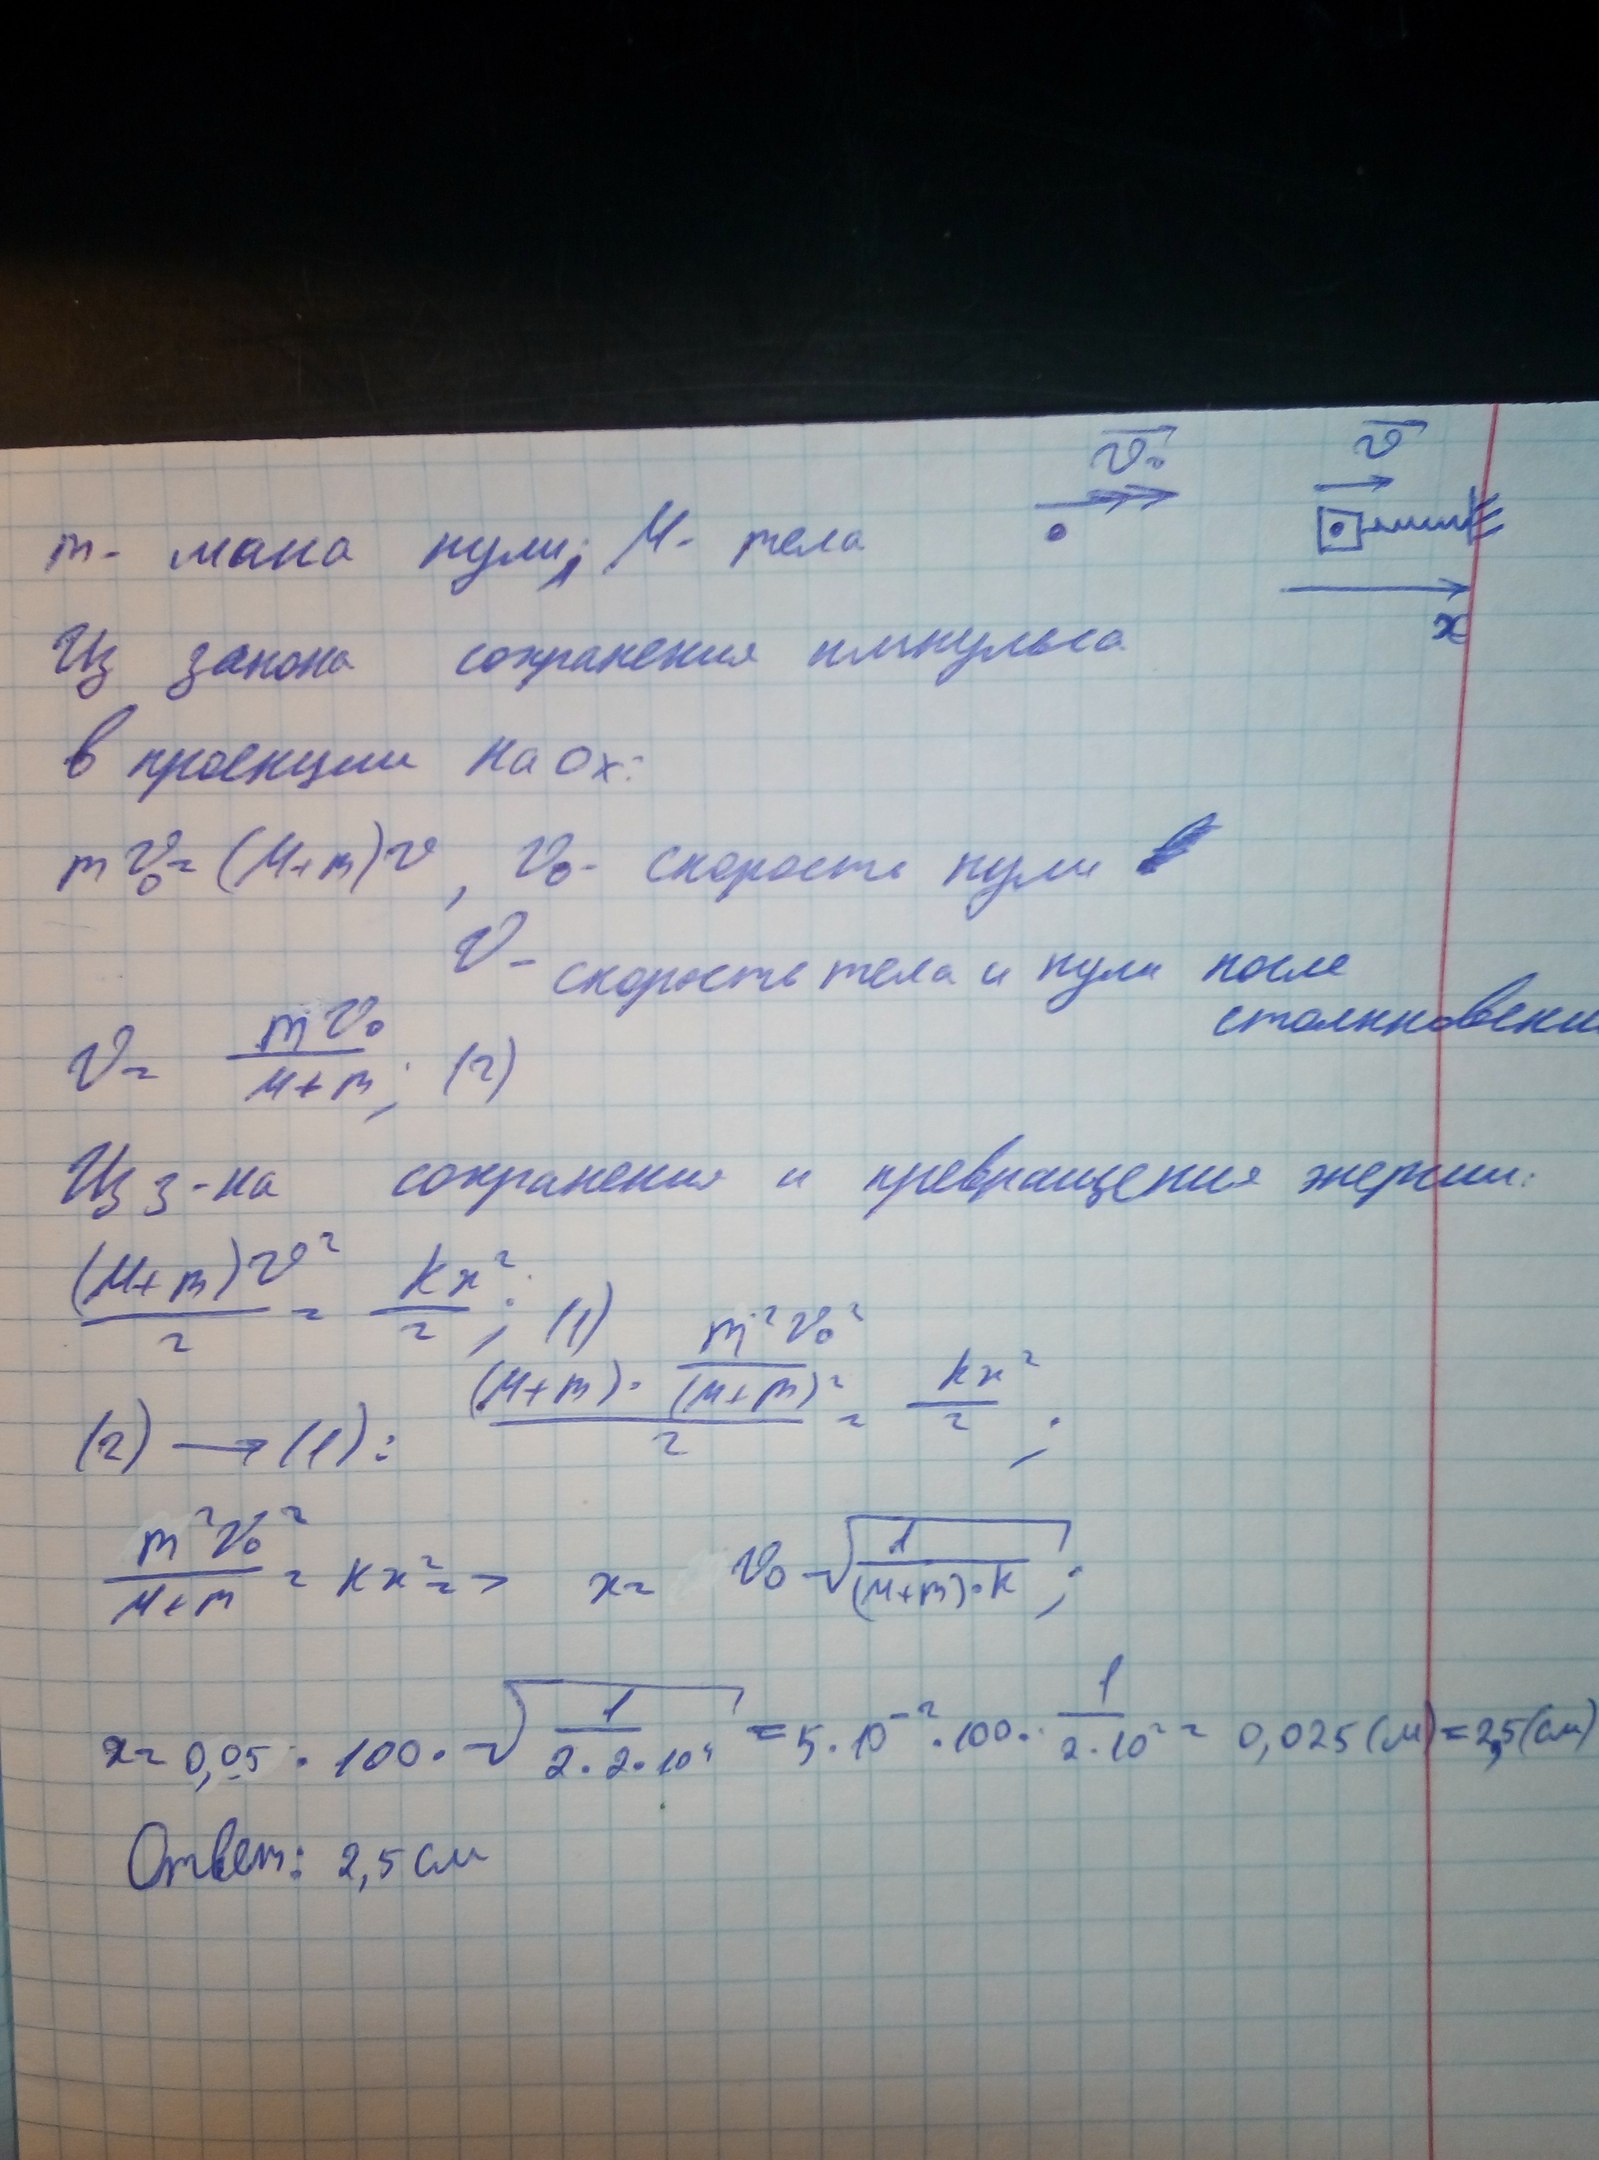 v₀ v
m - масса пули; M - тела
x
Из закона сохранения импульса
в проекции на Ox:
mv₀ = (M+m)v, v₀ - скорость пули
v - скорость тела и пули после
столкновени
v = mv₀/(M+m); (2)
Из з-на сохранения и превращения энергии:
(M+m)v²/2 = kx²/2; (1)
(2) → (1): ((M+m)·m²v₀²/(M+m)²)/2 = kx²/2;
m²v₀²/(M+m) = kx² => x = v₀√(1/((M+m)·k));
x = 0,05 · 100 · √(1/(2·2·10⁴)) = 5·10⁻²·100·1/(2·10²) = 0,025 (м) = 2,5 (см)
Ответ: 2,5 см